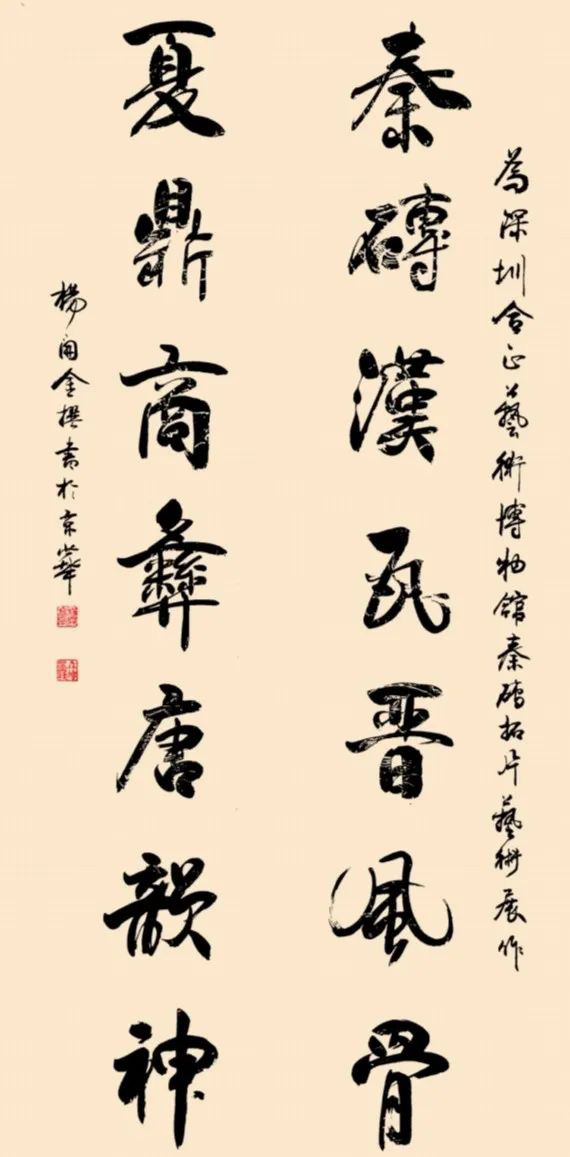 為深圳合正藝術博物館秦磚拓片藝術展作
秦磚漢瓦晉風骨
夏鼎商彝唐韻神
楊聞金撰書於京華